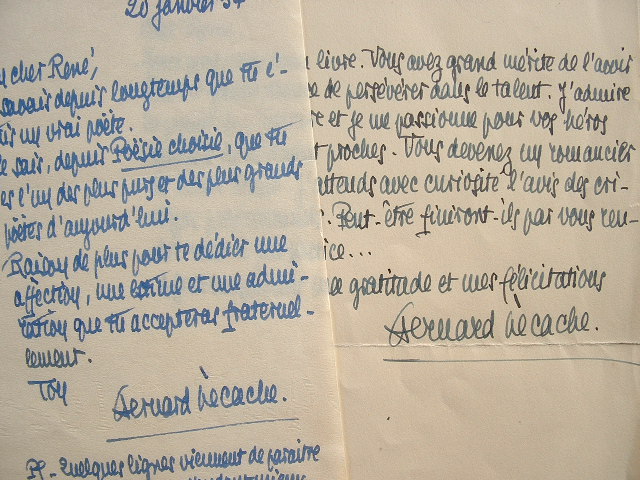 20 janvier 57
cher René,
savais depuis longtemps que tu é-
un vrai poète.
sais, depuis Poésie choisie, que tu
es l'un des plus purs et des plus grands
poètes d'aujourd'hui.
Raison de plus pour te dédier une
affection, une estime et une admi-
ration que tu accepteras fraternel-
lement.
Ton
Bernard Lecache.
PS - Quelques lignes viennent de paraître
livre. Vous avez grand mérite de l'avoir
de persévérer dans le talent. J'admire
et je me passionne pour vos héros
proches. Vous devenez un romancier
attends avec curiosité l'avis des cri-
Peut-être finiront-ils par vous ren-
ice...
gratitude et mes félicitations
Bernard Lecache.